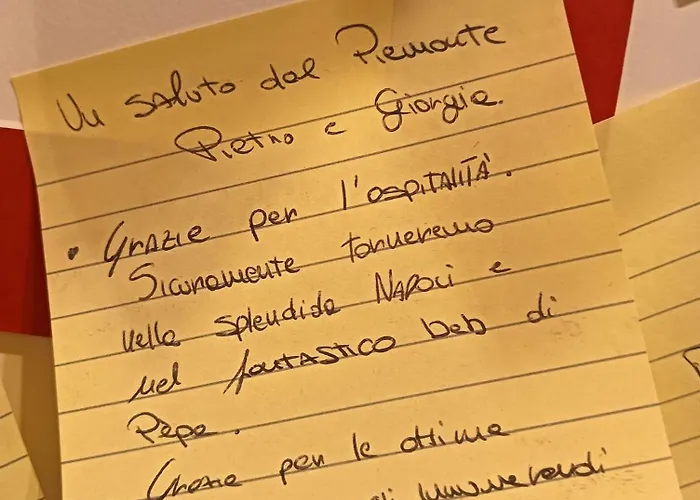 Un saluto dal Piemonte
Pietro e Giorgia.
• Grazie per l'ospitalità.
Sicuramente torneremo
nella splendida Napoli e
nel fantastico beb di
Pepe.
Grazie per le ottime